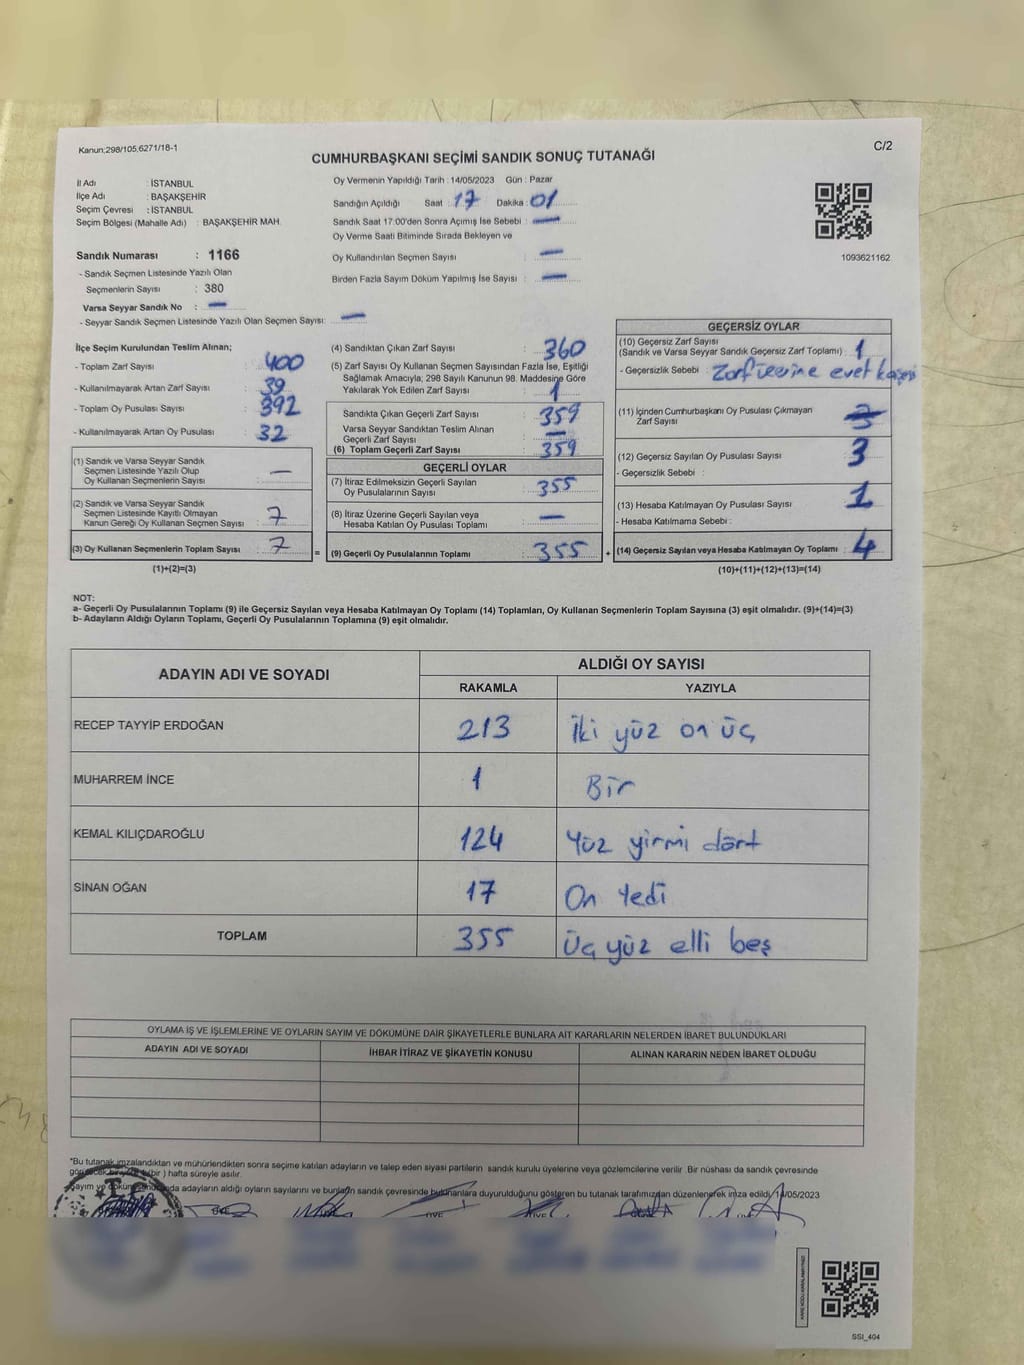 Kanun;298/105,6271/18-1
C/2
CUMHURBAŞKANI SEÇİMİ SANDIK SONUÇ TUTANAĞI
İl Adı : İSTANBUL
İlçe Adı : BAŞAKŞEHİR
Seçim Çevresi : İSTANBUL
Seçim Bölgesi (Mahalle Adı) : BAŞAKŞEHİR MAH.
Sandık Numarası : 1166
- Sandık Seçmen Listesinde Yazılı Olan
Seçmenlerin Sayısı : 380
Varsa Seyyar Sandık No : —
- Seyyar Sandık Seçmen Listesinde Yazılı Olan Seçmen Sayısı: —
Oy Vermenin Yapıldığı Tarih : 14/05/2023 Gün : Pazar
Sandığın Açıldığı Saat : 17 Dakika : 01
Sandık Saat 17:00'den Sonra Açımış İse Sebebi : —
Oy Verme Saati Bitiminde Sırada Bekleyen ve
Oy Kullandırılan Seçmen Sayısı : —
Birden Fazla Sayım Döküm Yapılmış İse Sayısı : —
1093621162
İlçe Seçim Kurulundan Teslim Alınan;
- Toplam Zarf Sayısı : 400
- Kullanılmayarak Artan Zarf Sayısı : 39
- Toplam Oy Pusulası Sayısı : 392
- Kullanılmayarak Artan Oy Pusulası : 32
(1) Sandık ve Varsa Seyyar Sandık
Seçmen Listesinde Yazılı Olup
Oy Kullanan Seçmenlerin Sayısı : —
(2) Sandık ve Varsa Seyyar Sandık
Seçmen Listesinde Kayıtlı Olmayan
Kanun Gereği Oy Kullanan Seçmen Sayısı : 7
(3) Oy Kullanan Seçmenlerin Toplam Sayısı : 7
(1)+(2)=(3)
(4) Sandıktan Çıkan Zarf Sayısı : 360
(5) Zarf Sayısı Oy Kullanan Seçmen Sayısından Fazla İse, Eşitliği
Sağlamak Amacıyla; 298 Sayılı Kanunun 98. Maddesine Göre
Yakılarak Yok Edilen Zarf Sayısı : 1
Sandıkta Çıkan Geçerli Zarf Sayısı : 359
Varsa Seyyar Sandıktan Teslim Alınan
Geçerli Zarf Sayısı : —
(6) Toplam Geçerli Zarf Sayısı : 359
GEÇERLİ OYLAR
(7) İtiraz Edilmeksizin Geçerli Sayılan
Oy Pusulalarının Sayısı : 355
(8) İtiraz Üzerine Geçerli Sayılan veya
Hesaba Katılan Oy Pusulası Toplamı : —
= (9) Geçerli Oy Pusulalarının Toplamı : 355
GEÇERSİZ OYLAR
(10) Geçersiz Zarf Sayısı
(Sandık ve Varsa Seyyar Sandık Geçersiz Zarf Toplamı) : 1
- Geçersizlik Sebebi : Zarf üzerine evet kaşesi
(11) İçinden Cumhurbaşkanı Oy Pusulası Çıkmayan
Zarf Sayısı :
(12) Geçersiz Sayılan Oy Pusulası Sayısı : 3
- Geçersizlik Sebebi :
(13) Hesaba Katılmayan Oy Pusulası Sayısı : 1
- Hesaba Katılmama Sebebi :
+ (14) Geçersiz Sayılan veya Hesaba Katılmayan Oy Toplamı : 4
(10)+(11)+(12)+(13)=(14)
NOT:
a- Geçerli Oy Pusulalarının Toplamı (9) ile Geçersiz Sayılan veya Hesaba Katılmayan Oy Toplamı (14) Toplamları, Oy Kullanan Seçmenlerin Toplam Sayısına (3) eşit olmalıdır. (9)+(14)=(3)
b- Adayların Aldığı Oyların Toplamı, Geçerli Oy Pusulalarının Toplamına (9) eşit olmalıdır.
ADAYIN ADI VE SOYADI
ALDIĞI OY SAYISI
RAKAMLA YAZIYLA
RECEP TAYYİP ERDOĞAN 213 İki yüz on üç
MUHARREM İNCE 1 Bir
KEMAL KILIÇDAROĞLU 124 Yüz yirmi dört
SİNAN OĞAN 17 On Yedi
TOPLAM 355 Üç yüz elli beş
OYLAMA İŞ VE İŞLEMLERİNE VE OYLARIN SAYIM VE DÖKÜMÜNE DAİR ŞİKAYETLERLE BUNLARA AİT KARARLARIN NELERDEN İBARET BULUNDUKLARI
ADAYIN ADI VE SOYADI İHBAR İTİRAZ VE ŞİKAYETİN KONUSU ALINAN KARARIN NEDEN İBARET OLDUĞU
"Bu tutanak imzalandıktan ve mühürlendikten sonra seçime katılan adayların ve talep eden siyasi partilerin sandık kurulu üyelerine veya gözlemcilerine verilir .Bir nüshası da sandık çevresinde
(bir ) hafta süreyle asılır.
adayların aldığı oyların sayılarını ve bunların sandık çevresinde bulunanlara duyurulduğunu gösteren bu tutanak tarafımızdan düzenlenerek imza edildi. 14/05/2023
SSI_404